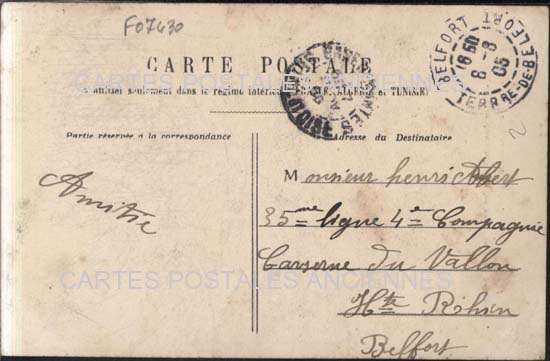 F07430
CARTE POSTALE
CARTES POSTALES ANCIENNES
seulement dans le régime intérieur (FRANCE, ALGÉRIE et TUNISIE)
BELFORT
18 50
8 - 8
05
TERRRE-DE-BELFORT
2
Partie réservée à la correspondance
Adresse du Destinataire
Amitié
Monsieur henri
35me ligne 4e Compagnie
Carserne du Vallon
CARTES POSTALES ANCIENNES
Hte Rihin
Belfort